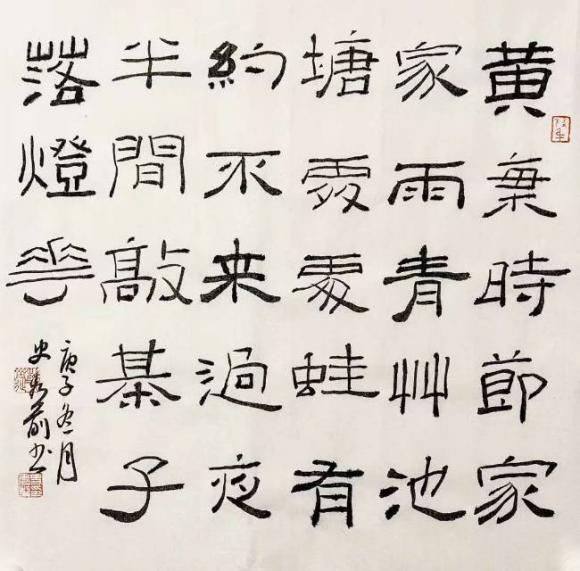 黄梅時節家
家雨青艸池
塘處處蛙有
約不来過夜
半間敲棊子
落燈花
庚子冬月
史前书